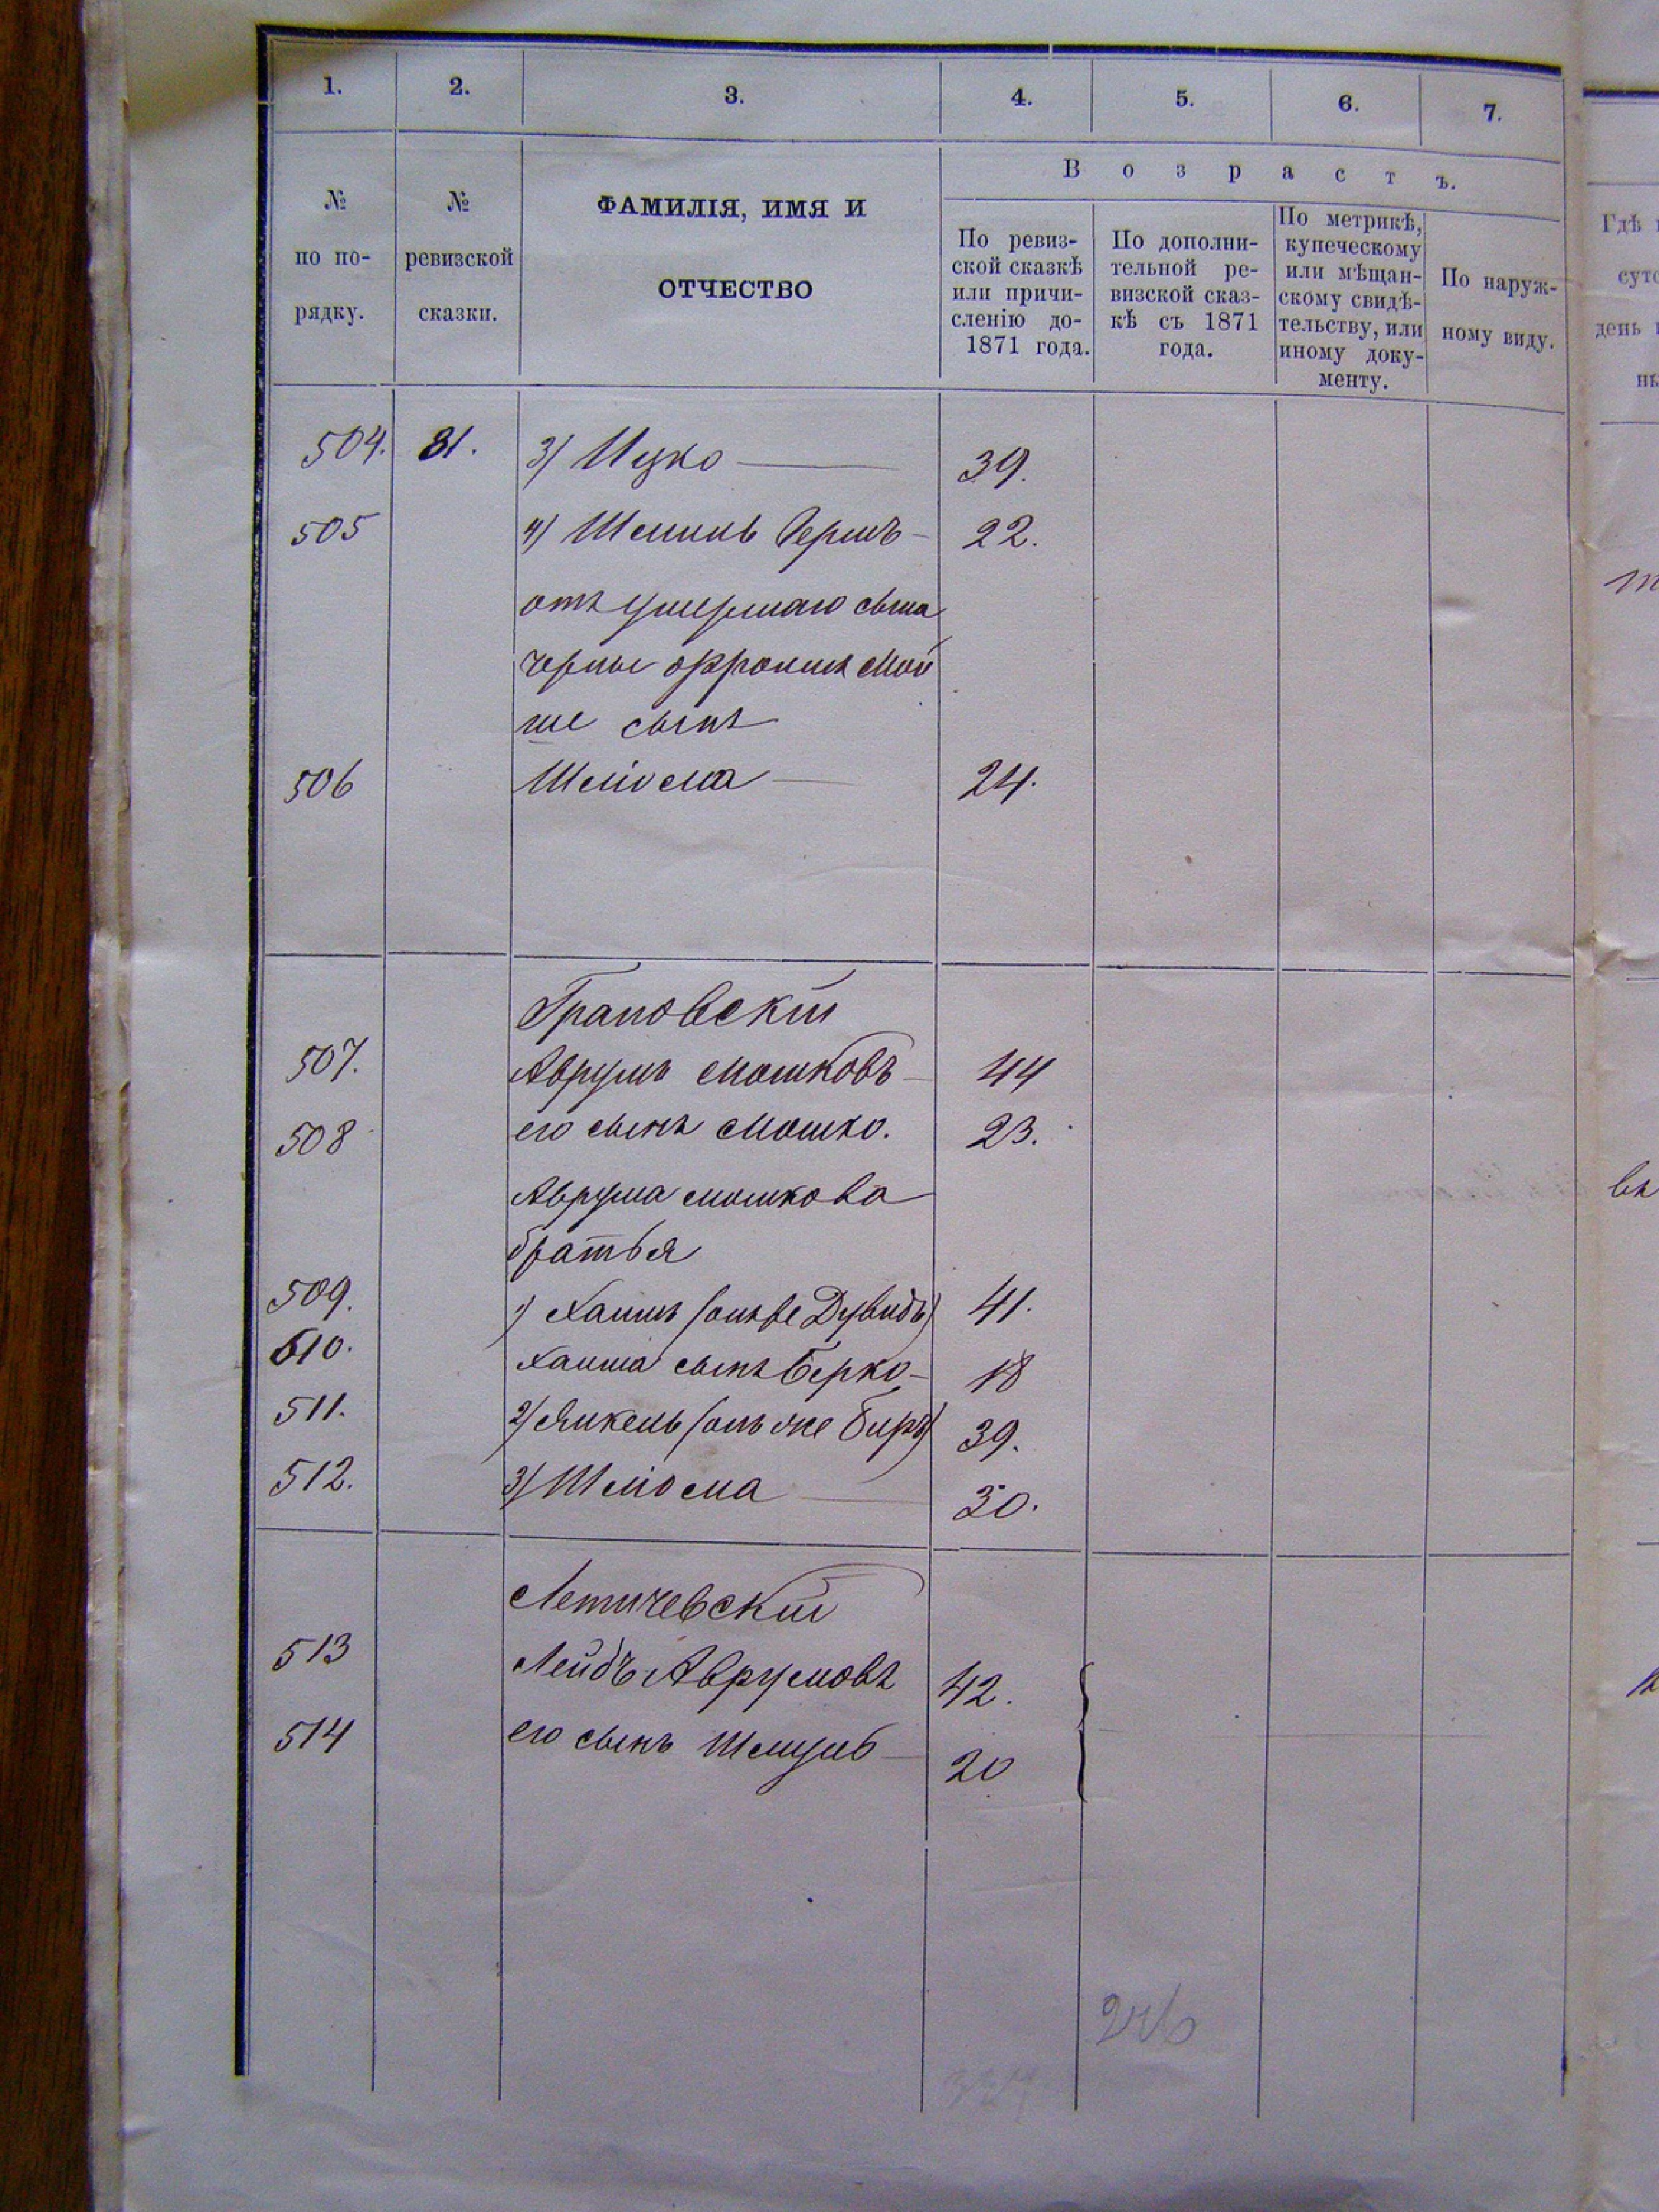 1. 2. 3. 4. 5. 6. 7.
№ по по-рядку.
№ ревизской сказки.
ФАМИЛІЯ, ИМЯ И
ОТЧЕСТВО
Возрастъ.
По ревиз-
ской сказкѣ
или причи-
сленію до-
1871 года.
По дополни-
тельной ре-
визской сказ-
кѣ съ 1871
года.
По метрикѣ,
купеческому
или мѣщан-
скому свидѣ-
тельству, или
иному доку-
менту.
По наруж-
ному виду.
504. 81. 3) Ицко — 39.
505 4) Шмиль Гершъ — 22.
отъ умершаго сына
Мой
ше сынъ
506 Шлiома — 24.
Грановскій
507. Аврумъ Мошковъ — 44
508 его сынъ Мошко. 23.
Аврума Мошкова
братья
509. 1) Хаимъ (онъ же Дувидъ) 41.
510. Хаима сынъ Берко — 18
511. 2) Янкель (онъ же Беръ) 39.
512. 3) Шлiома — 30.
Летичевскій
513 Лейбъ Аврумовъ 42.
514 его сынъ Шмуль — 20
Гдѣ
день
246